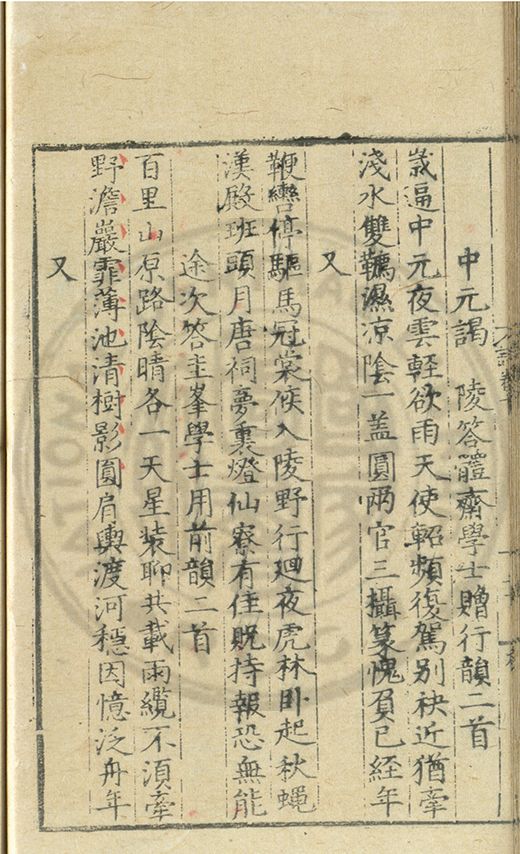 中元謁　陵答體齋學士贈行韻二首
歲逼中元夜雲輕欲雨天使軺頻復駕別袂近猶牽
淺水雙韉濕凉陰一盖圓兩官三攝篆愧負已經年
又
鞭轡停驅馬冠裳俟入陵野行廻夜虎林卧起秋蝇
漢殿班頭月唐祠夢裏燈仙寮有佳貺持報恐無能
途次答圭峯學士用前韻二首
百里山原路陰晴各一天星裝聊共載雨纜不須牽
野澹巖霏薄池清樹影圓肩輿渡河穩因憶泛舟年
又